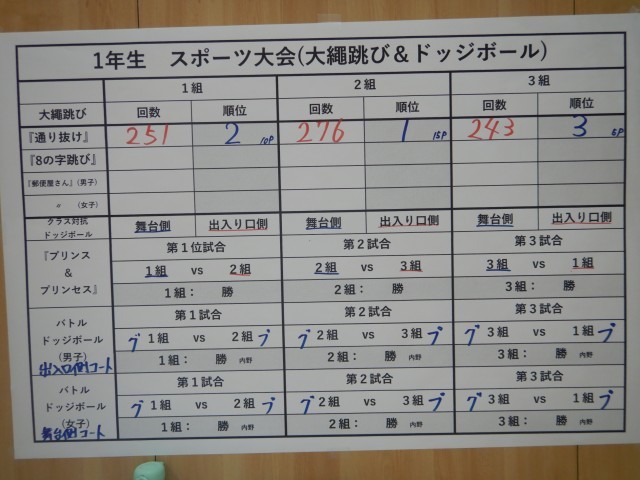 1年生 スポーツ大会(大縄跳び＆ドッジボール)
1組 2組 3組
大縄跳び 回数 順位 回数 順位 回数 順位
『通り抜け』 251 2 10P 276 1 15P 243 3 5P
『8の字跳び』
『郵便屋さん』(男子)
〃 (女子)
クラス対抗
ドッジボール 舞台側 出入り口側 舞台側 出入り口側 舞台側 出入り口側
『プリンス
＆
プリンセス』
第1位試合 第2試合 第3試合
1組 vs 2組 2組 vs 3組 3組 vs 1組
1組： 勝 2組： 勝 3組： 勝
バトル
ドッジボール
(男子)
出入口側コート
第1試合 第2試合 第3試合
ブ 1組 vs 2組 ブ ブ 2組 vs 3組 ブ ブ 3組 vs 1組 ブ
1組： 勝 内野 2組： 勝 内野 3組： 勝 内野
バトル
ドッジボール
(女子)
舞台側コート
第1試合 第2試合 第3試合
ブ 1組 vs 2組 ブ ブ 2組 vs 3組 ブ ブ 3組 vs 1組 ブ
1組： 勝 内野 2組： 勝 内野 3組： 勝 内野